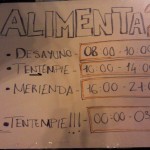 ALIMENTA
· DESAYUNO- 08:00-10:0
· TENTEMPIE- 10:00-14:0
· MERIENDA- 16:00-2
· TENTEMPIE!!!- 00:00-0